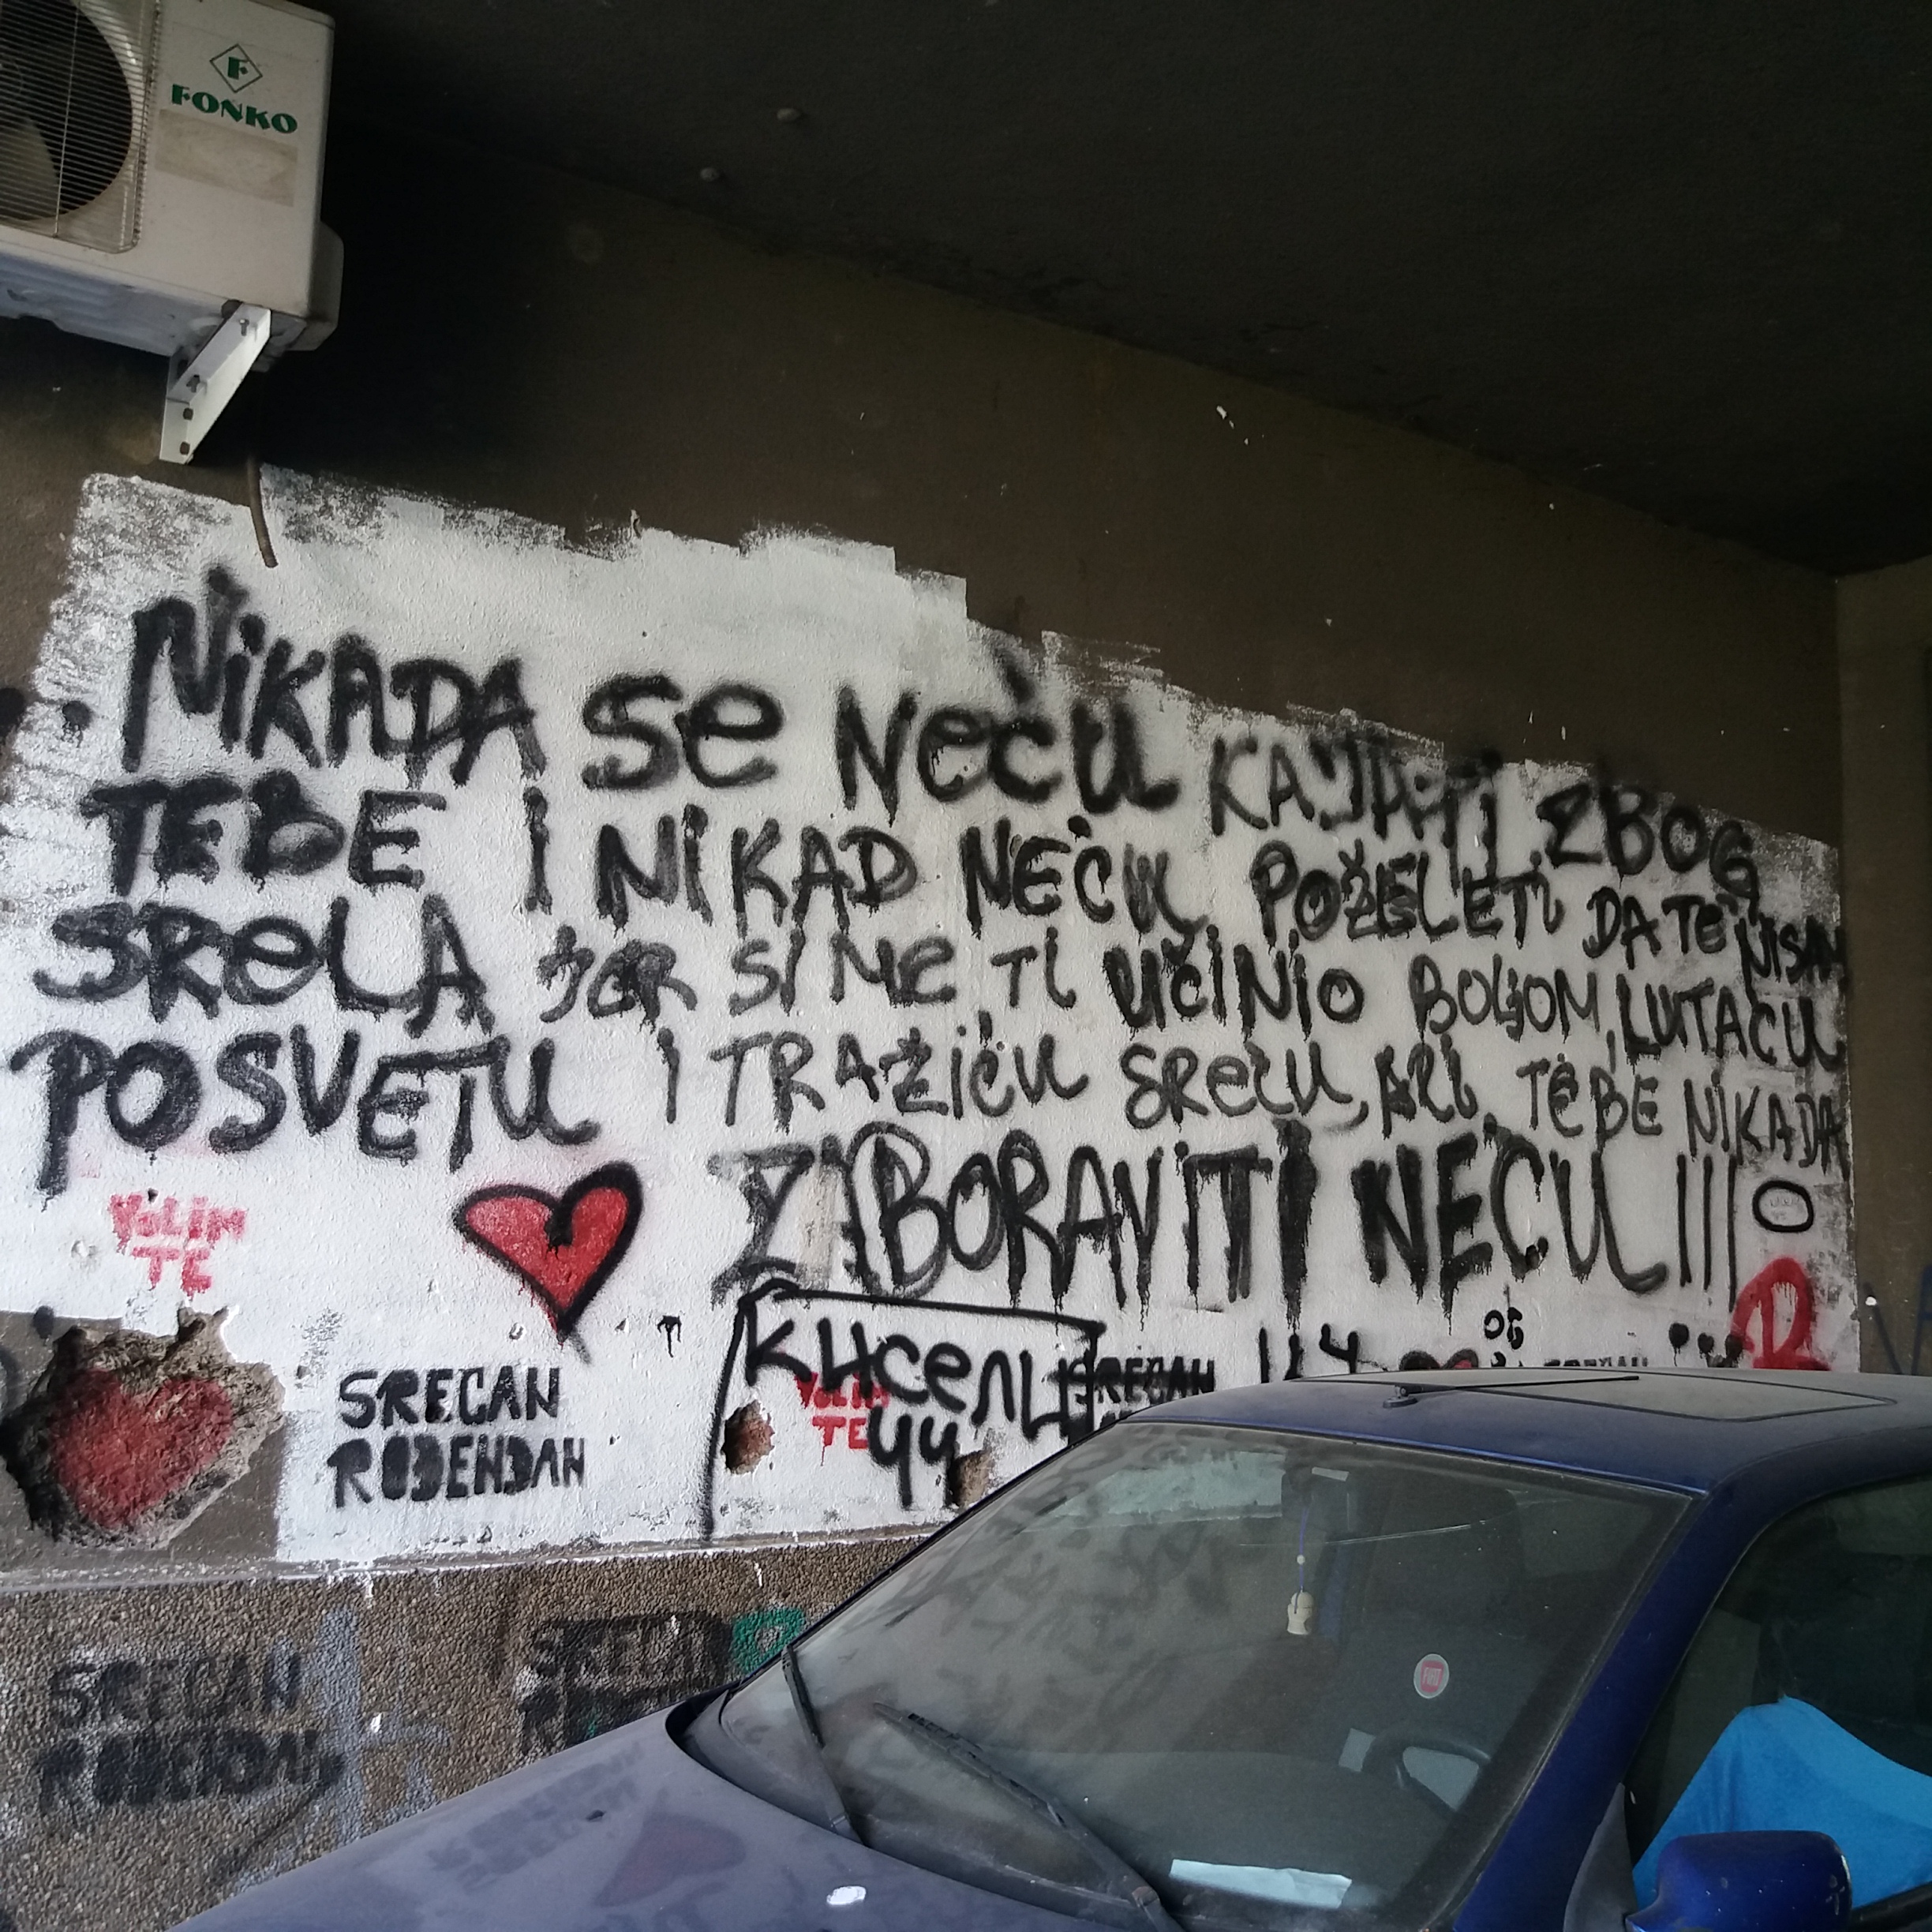 F
FONKO
NiKADA Se NeĆU KAJATI ZBOG
TEBE I NIKAD NEĆU POŽELETI DA TE NISAM
SReLA JER SI ME TI UČINIO BOLJOM, LUTAĆU
POSVETU I TRAŽIĆU SREĆU, ALI TEBE NIKADA
ZABORAVITI NEĆU !!!
VOLIM
TE
SRECAN
ROĐENDAN
Киселц
SRECAN
VOLIM
TE
44
SRECAN
ROĐENDAN
SRECAN
FIAT